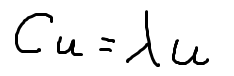 Cu = λu